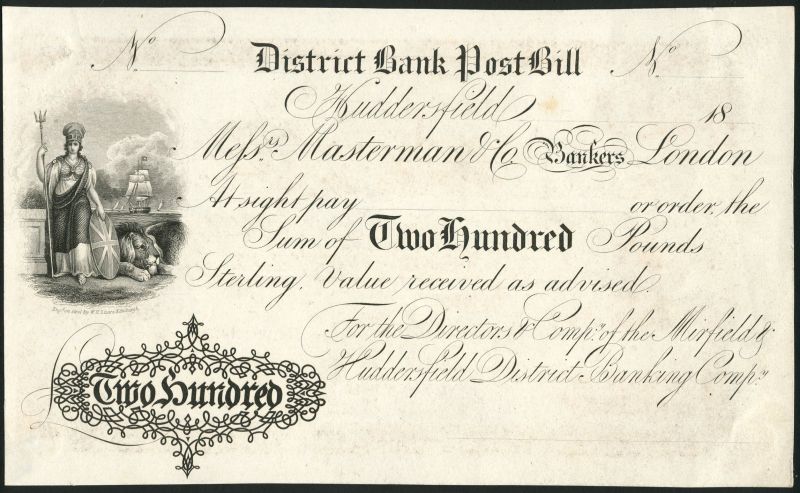 No District Bank Post Bill No
Huddersfield 18
Messrs Masterman & Co Bankers London
At sight pay or order, the
Sum of Two Hundred Pounds
Sterling, Value received as advised.
For the Directors & Compy of the Mirfield &
Huddersfield District Banking Compy
£ Two Hundred